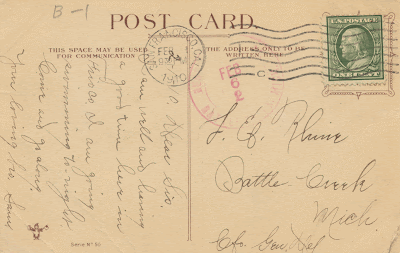 B-1
POST CARD.
THIS SPACE MAY BE USED
FOR COMMUNICATION
THE ADDRESS ONLY TO BE
WRITTEN HERE
FRANCISCO, CAL.
FEB
1910
C
U.S. POSTAGE
ONE CENT
Dear Sis.
am well and having
a good time here in
Frisco. I am going
swimming to-night
Come and go along.
Your loving bro. Sam
Battle Creek
Mich.
C/o. Gen. Del
Serie No